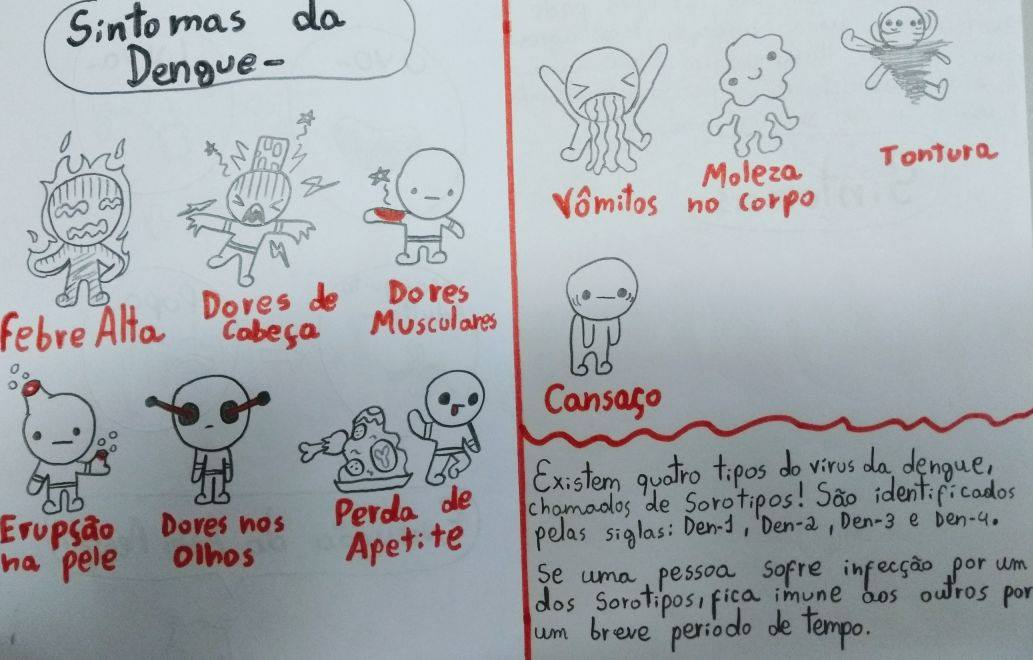 Sintomas da
Dengue-
Febre Alta
Dores de
Cabeça
Dores
Musculares
Erupsão
na pele
Dores nos
Olhos
Perda de
Apetite
Vômitos
Moleza
no corpo
Tontura
Cansaço
Existem quatro tipos do vírus da dengue,
chamados de Sorotipos! São identificados
pelas siglas: Den-1, Den-2, Den-3 e Den-4.
Se uma pessoa sofre infecção por um
dos Sorotipos, fica imune aos outros por
um breve período de tempo.